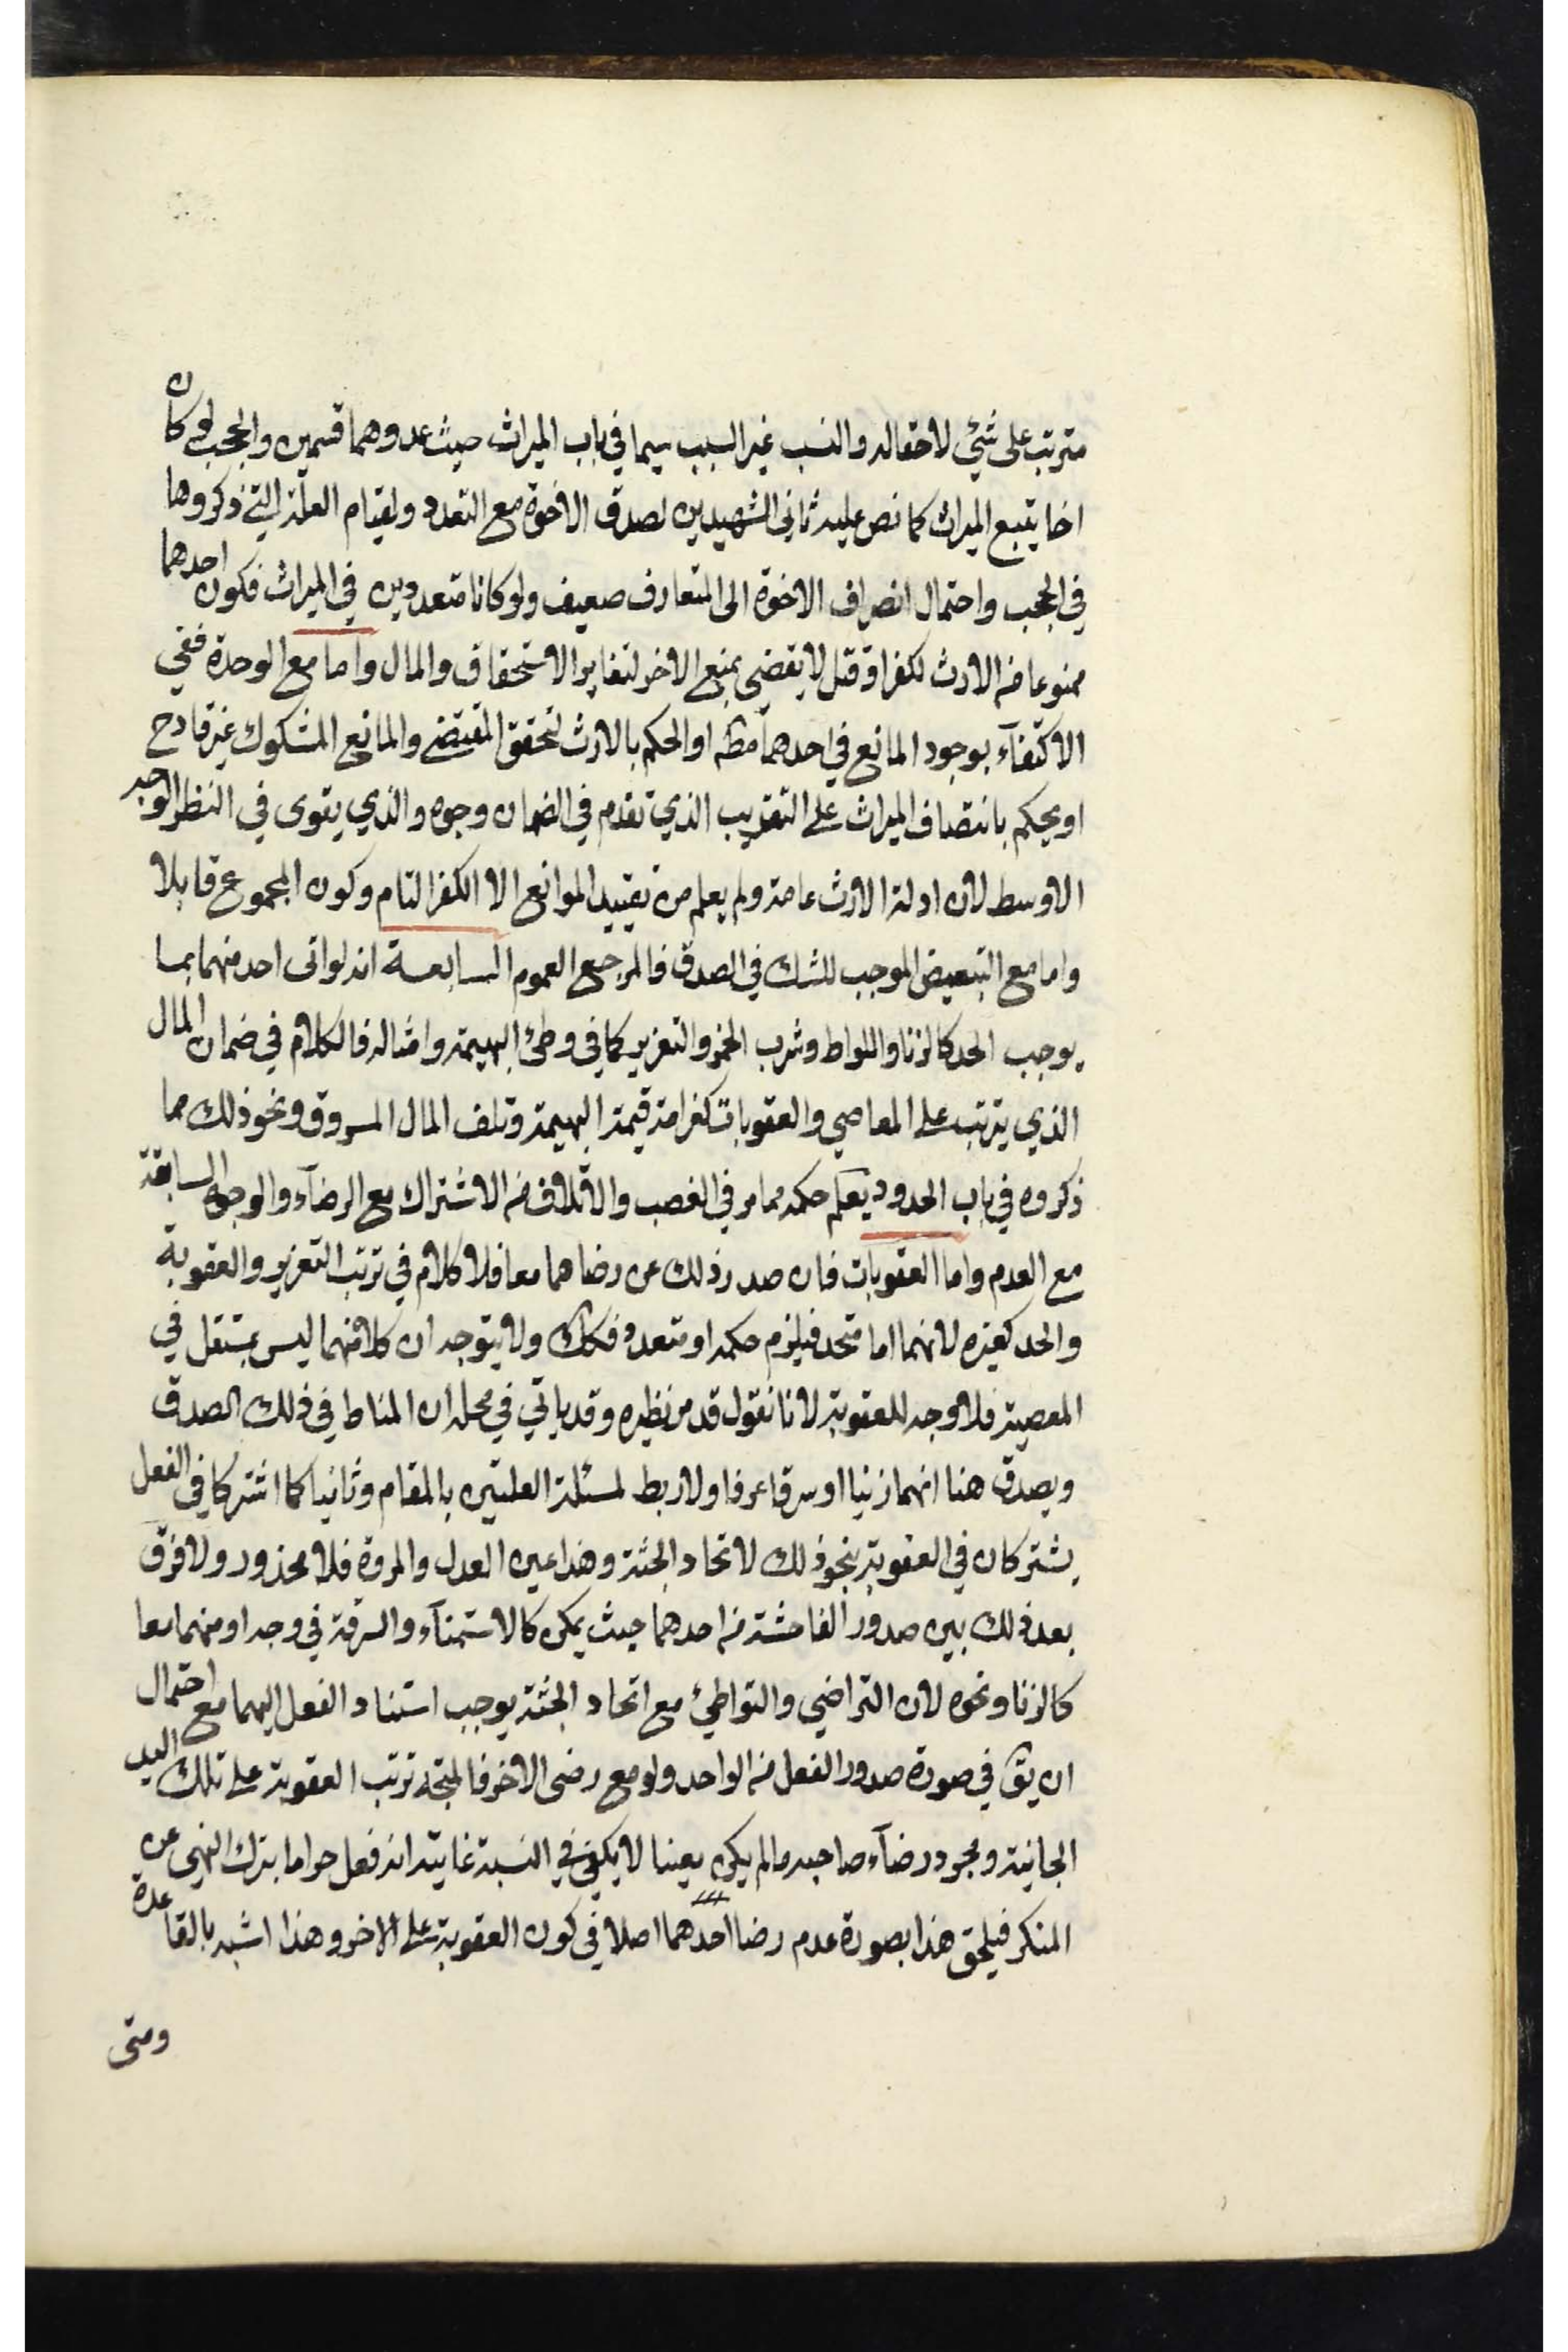 مترتب على شئ لاحقاله والنسب غير السبب سيما في باب الميراث حيث عدوهما قسمين والحجب لو كان
اخا يتبع الميراث كما نص عليه ثاني الشهيدين لصدق الاخوة مع التعدد ولقيام العلة التي ذكروها
في الحجب واحتمال انصراف الاخوة الى المتعارف ضعيف ولو كانا متعددين في الميراث فكون احدهما
ممنوعا من الارث لكفر او قتل لا يقضي بمنع الاخر لتغاير الاستحقاق والمال واما مع الوحدة ففي
الاكتفآء بوجود المانع في احدهما مط او الحكم بالارث لتحقق المقتضي والمانع المشكوك غير قادح
او يحكم بانتصاف الميراث على التقريب الذي تقدم في الضمان وجوه والذي يقوى في النظر الوجه
الاوسط لان ادلة الارث عامة ولم يعلم من تقييد الموانع الا الكفر التام وكون المجموع قابلا
واما مع التبعيض الموجب للشك في الصدق فالمرجع العموم السابعة انه لو اتى احد منهما بما
يوجب الحد كالزنا واللواط وشرب الخمر والتعزير كما في وطئ البهيمة وامثاله فالكلام في ضمان المال
الذي يترتب على المعاصي والعقوبات كغرامة قيمة البهيمة وتلف المال المسروق ونحو ذلك مما
ذكروه في باب الحدود يعلم حكمه مما مر في الغصب والاتلاف من الاشتراك مع الرضآء والوجوه السابقة
مع العدم واما العقوبات فان صدر ذلك عن رضاهما معا فلا كلام في ترتب التعزير والعقوبة
والحد كغيره لانهما اما متحد فيلزم حكمه او متعدد فكك ولا يتوجه ان كلا منهما ليس بمستقل في
المعصية فلا وجه للعقوبة لانا نقول قد مر نظيره وقد ياتي في محله ان المناط في ذلك الصدق
ويصدق هنا انهما زنيا او سرقا عرفا ولا ربط لمسئلة العلتين بالمقام وثانيا كما اشتركا في الفعل
يشتركان في العقوبة بنحو ذلك لاتحاد الجثة وهذا عين العدل والمروة فلا محذور ولا فرق
بعد ذلك بين صدور الفاحشة من احدهما حيث يمكن كالاستمنآء والسرقة في وجه او منهما معا
كالزنا ونحوه لان التراضي والتواطئ مع اتحاد الجثة يوجب استناد الفعل اليهما مع احتمال
ان يق في صورة صدور الفعل من الواحد ولو مع رضى الاخر فالمتجه ترتب العقوبة على تلك اليد
الجانية ومجرد رضآء صاحبه ما لم يكن معينا لا يكفي في النسبة غايته انه فعل حراما بترك النهي عن
المنكر فيلحق هذا بصورة عدم رضا احدهما اصلا في كون العقوبة على الاخر وهذا اشبه بالقاعدة
ومتى